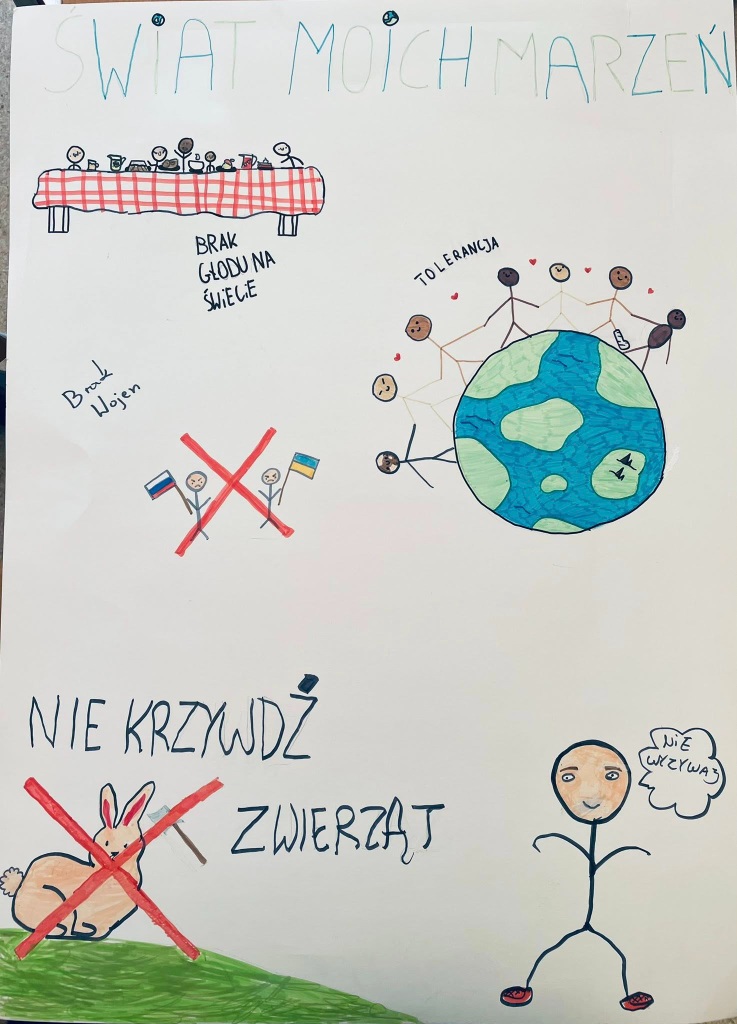 ŚWiAT MOiCH MARZEŃ
BRAK
GŁODU NA
ŚWIECIE
TOLERANCJA
Brak
Wojen
NIE KRZYWDŹ
ZWIERZĄT
NiE
WYZYWAJ